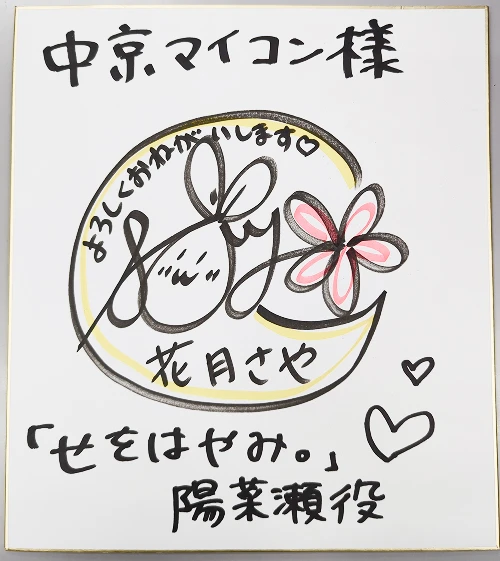 中京マイコン様
よろしくおねがいします♡
Saya
花月さや
「せをはやみ。」
陽菜瀬役